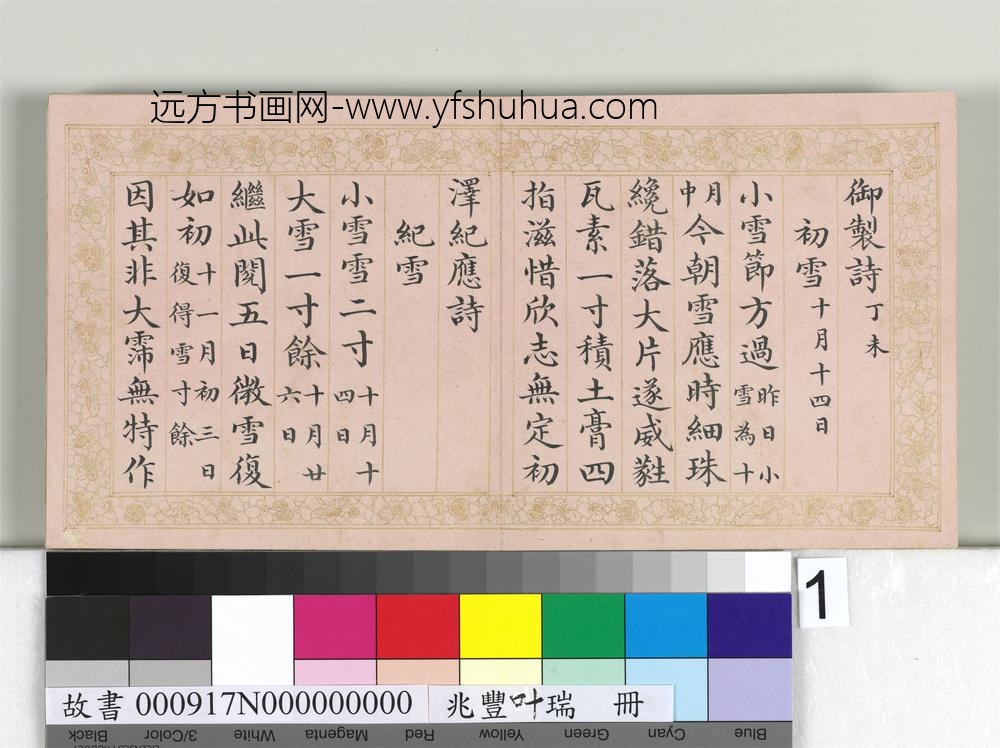 远方书画网-www.yfshuhua.com
御製詩丁未
初雪十月十四日
小雪節方過昨日小雪為十
月中今朝雪應時細珠
纔錯落大片遂威蕤
瓦素一寸積土膏四
指滋惜欣志無定初
澤紀應詩
紀雪
小雪雪二寸十月十四日
大雪一寸餘十月廿六日
繼此閱五日徵雪復
如初十一月初三日復得雪寸餘
因其非大霈無特作
1
故書 000917N000000000 兆豐叶瑞 冊
Black 3/Color White Magenta Red Yellow Green Cyan Blue